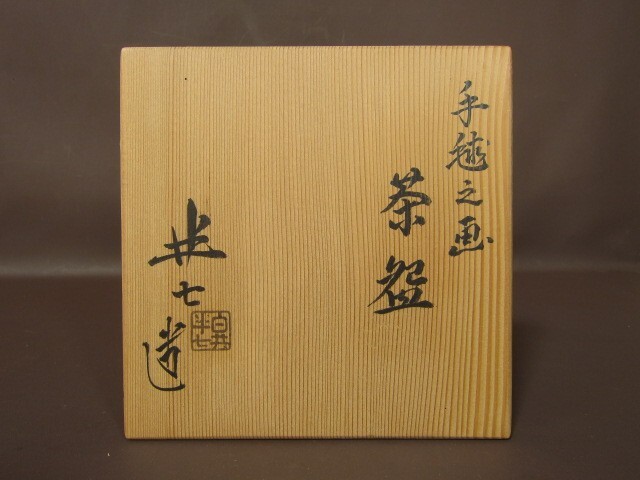 手毬之画
茶盌
半七造
白井
半七